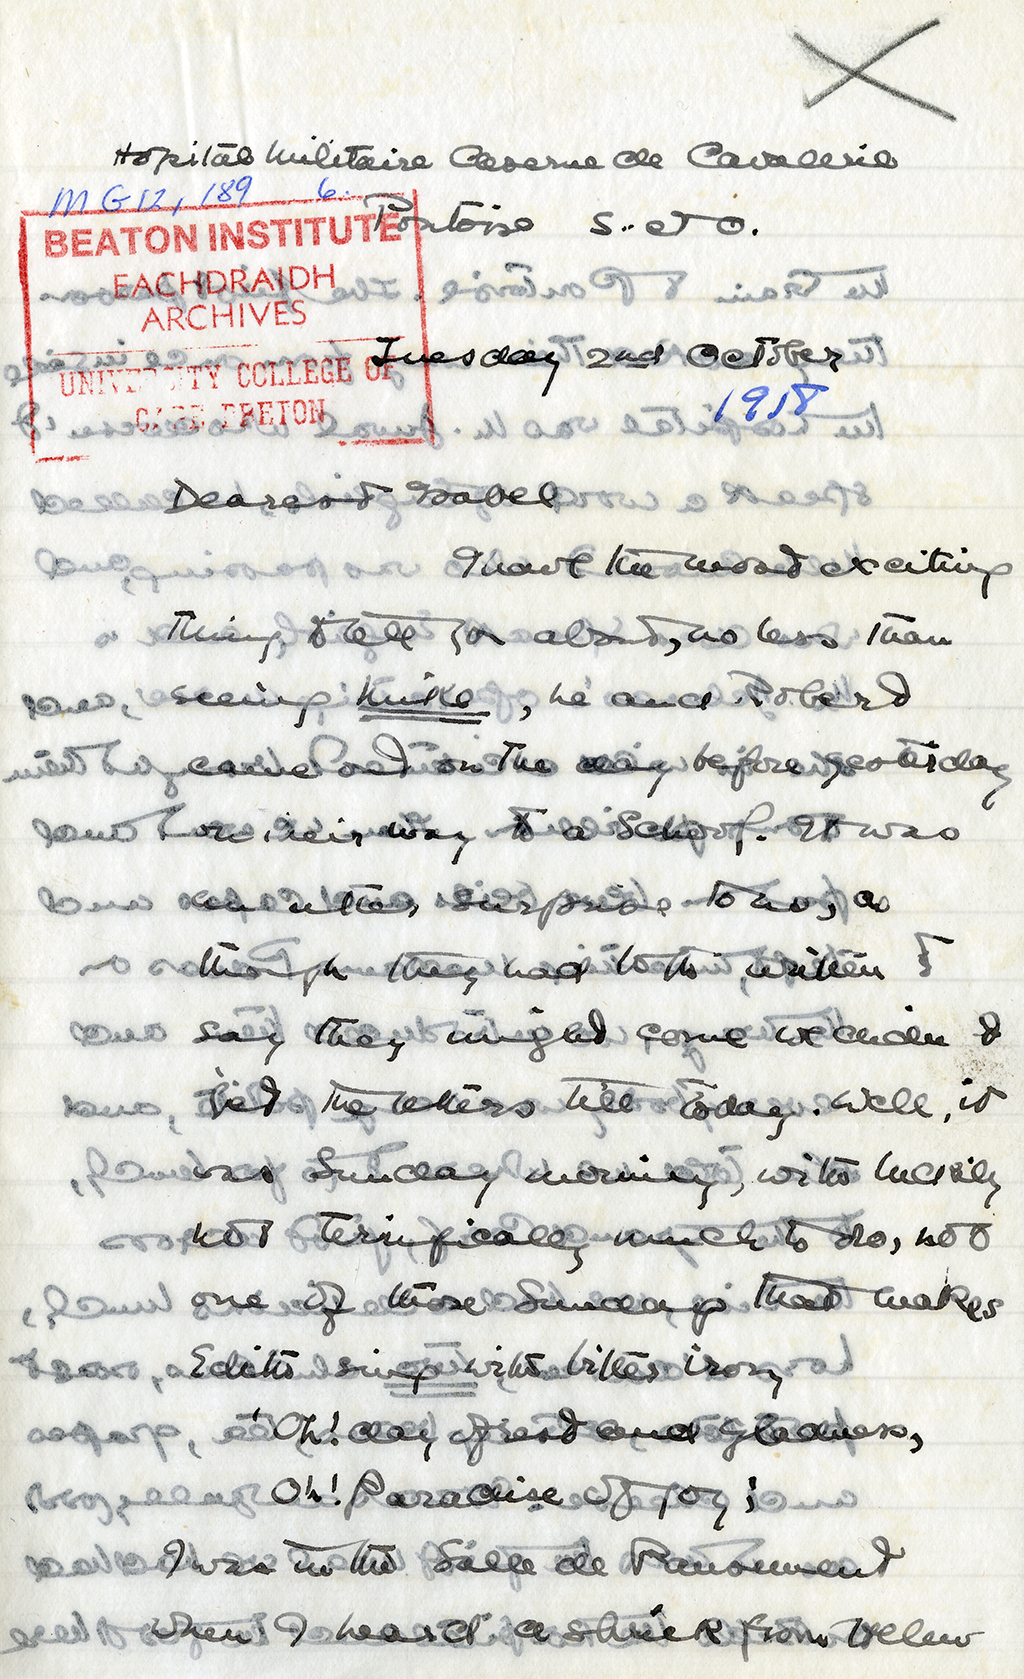 Hopital Militaire Caserne de Cavalerie
MG 12, 189 6.
Pontoise S. et O.
BEATON INSTITUTE
EACHDRAIDH
ARCHIVES
UNIVERSITY COLLEGE OF
CAPE BRETON
Tuesday 2nd October
1918
Dearest Isabel
I have the most exciting
thing to tell you about, no less than
seeing Mike, he and Robert
came out on the day before yesterday
on their way to a School. It was
an utter surprise to us, as
though they had both written to
say they might come we didn't
get the letters till today. Well, it
was Sunday morning, with luckily
not terrifically much to do, not
one of those Sundays that makes
Edith sing with bitter irony
'Oh! day of rest and gladness,
Oh! Paradise of joy;
I was in the Salle de Pansement
when I heard a shriek from Helen